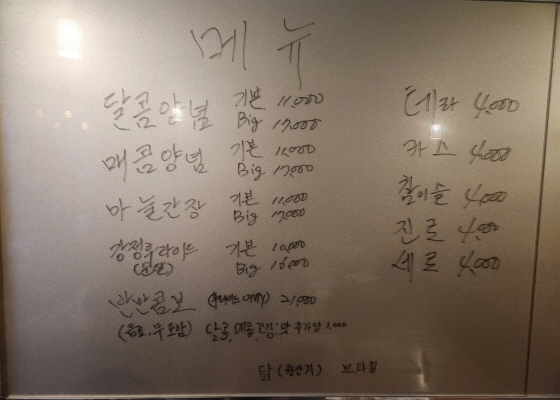 메뉴
달콤양념 기본 11,000
Big 17,000
매콤양념 기본 11,000
Big 17,000
마늘간장 기본 11,000
Big 17,000
강정후라이드 기본 10,000
(순살) Big 16,000
반반콤보 21,000
(음료, 무 포함) 달콤, 매콤, 간장 맛 추가당 1,000
닭 (원산지) 브라질
테라 4,000
카스 4,000
참이슬 4,000
진로 4,000
새로 4,000